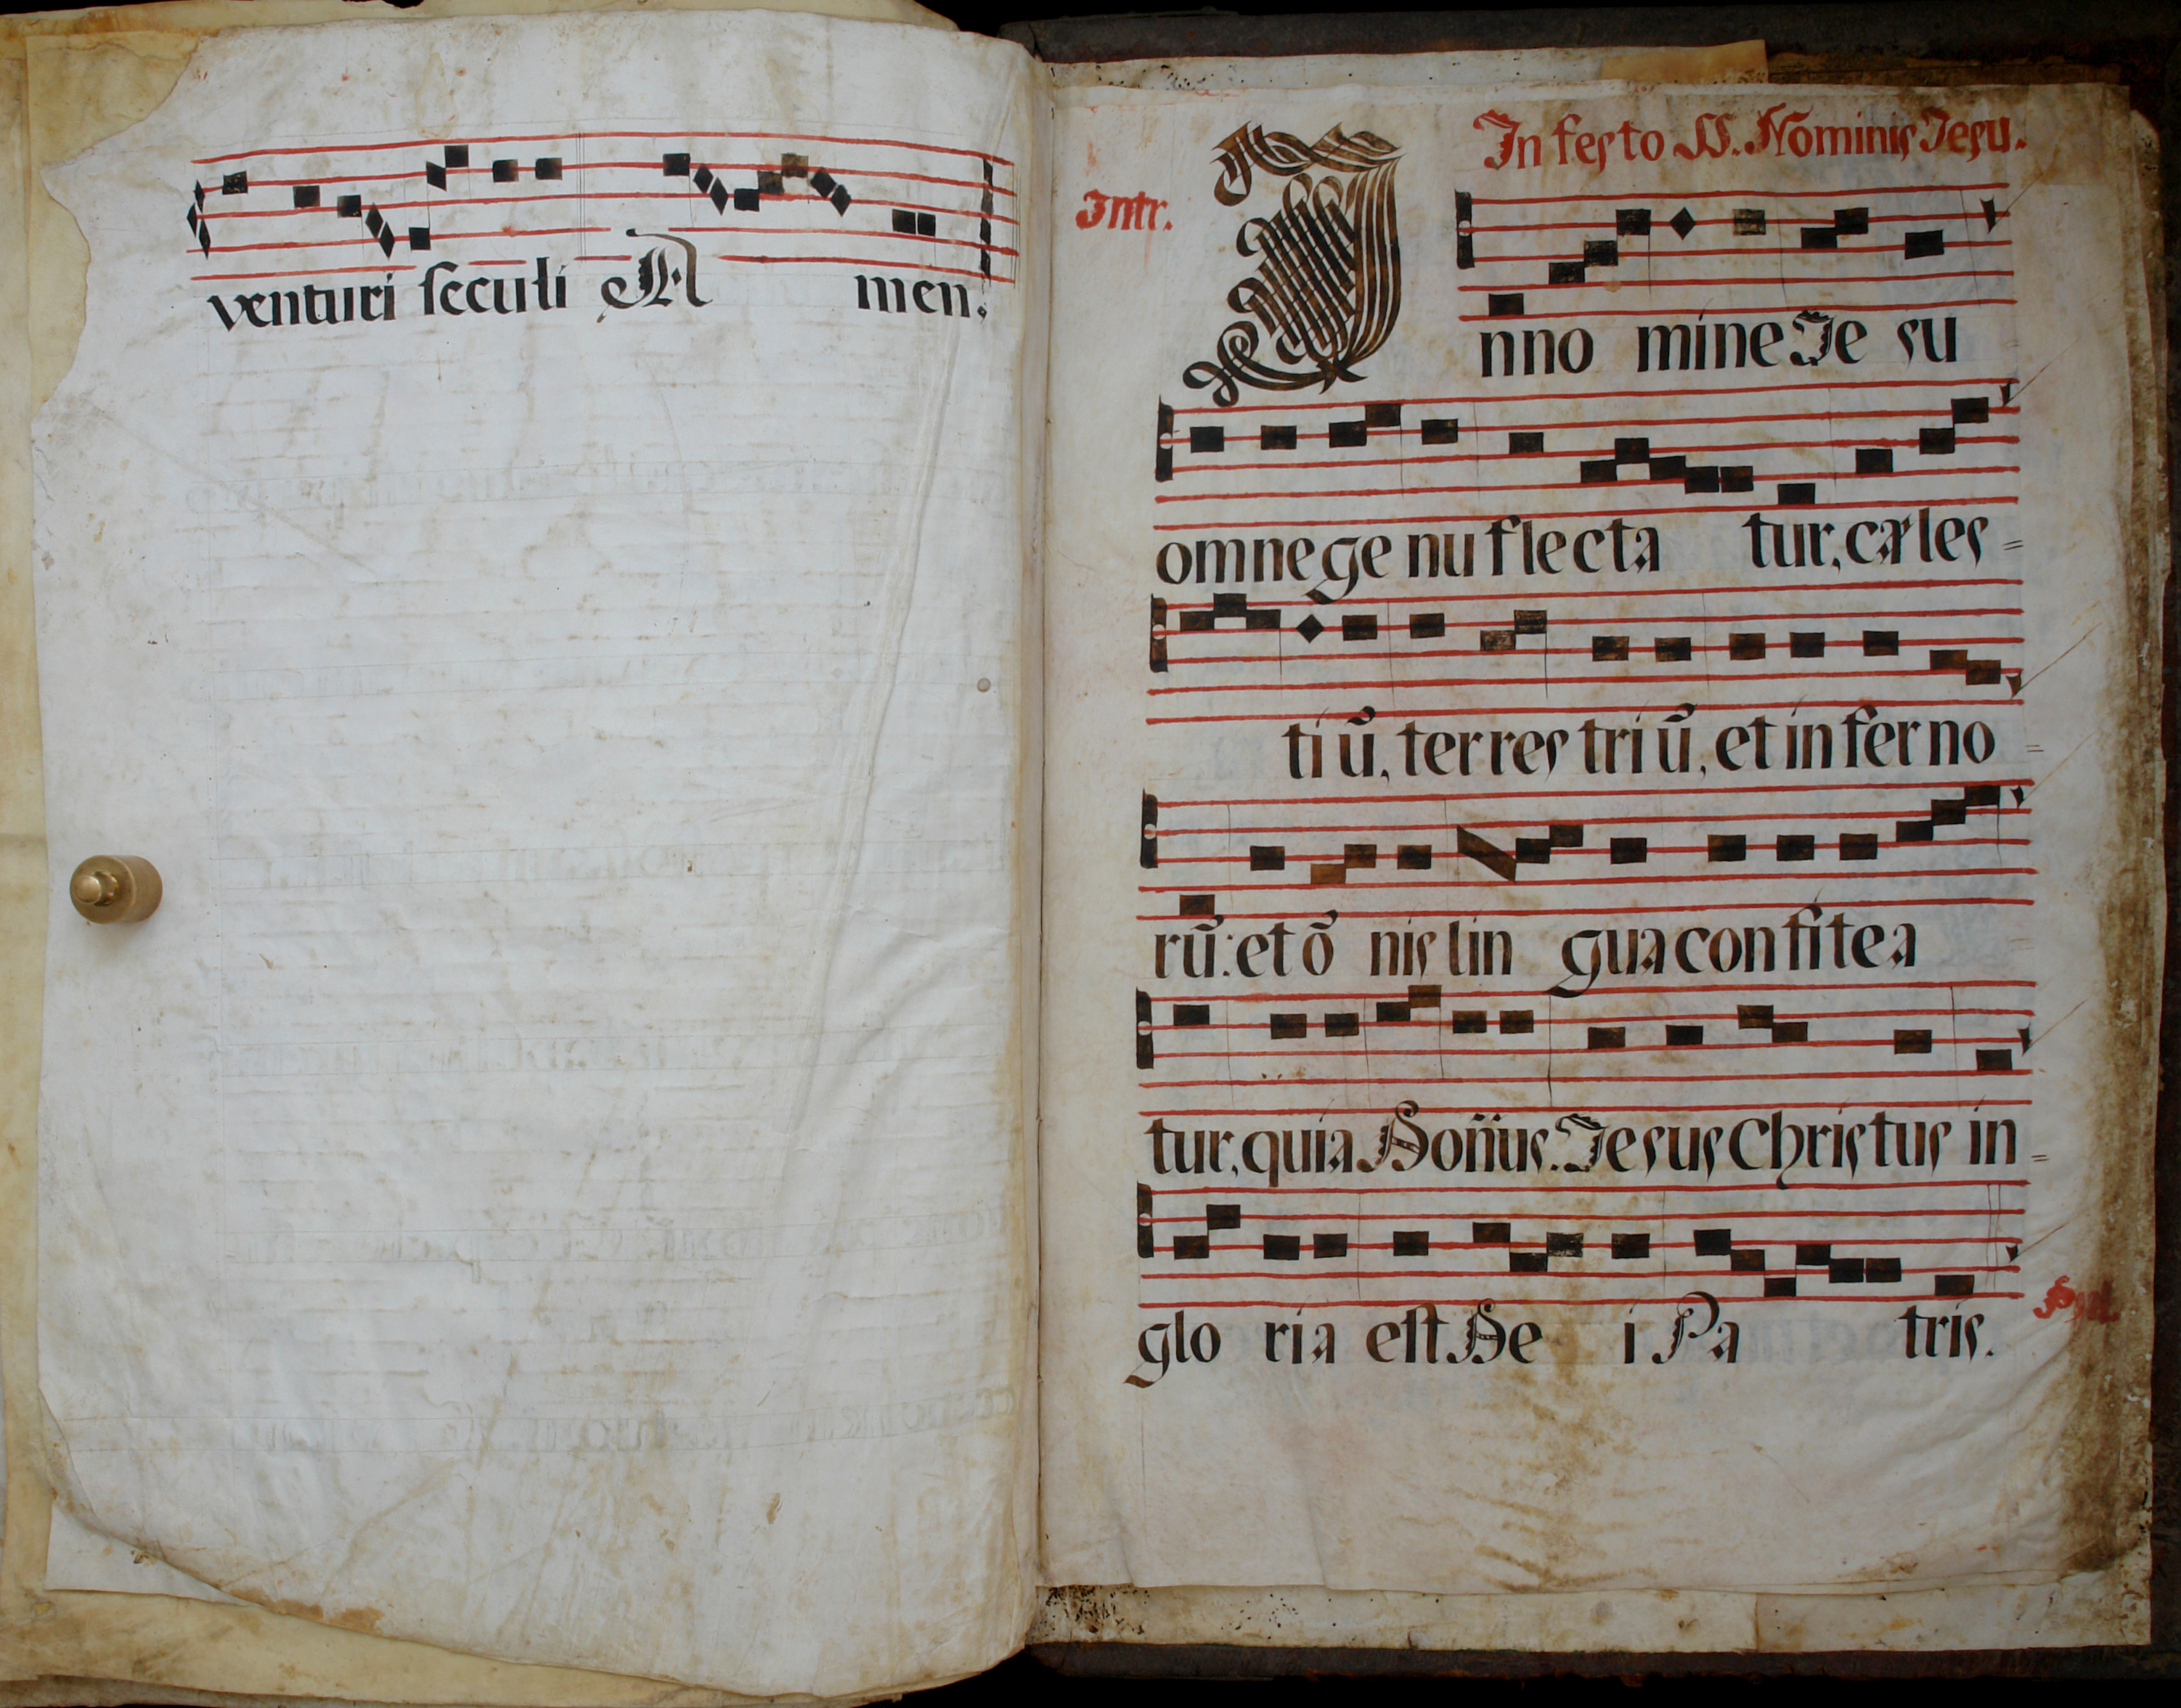 venturi seculi A men.
In festo SS. Nominis Jesu.
Intr.
I nno mine Je su
omne ge nu flecta tur, cæles =
ti ũ, terres tri ũ, et in fer no =
rũ: et õ nis lin gua con fi te a
tur, quia Doñus. Jesus Christus in =
glo ria est De i Pa tris.